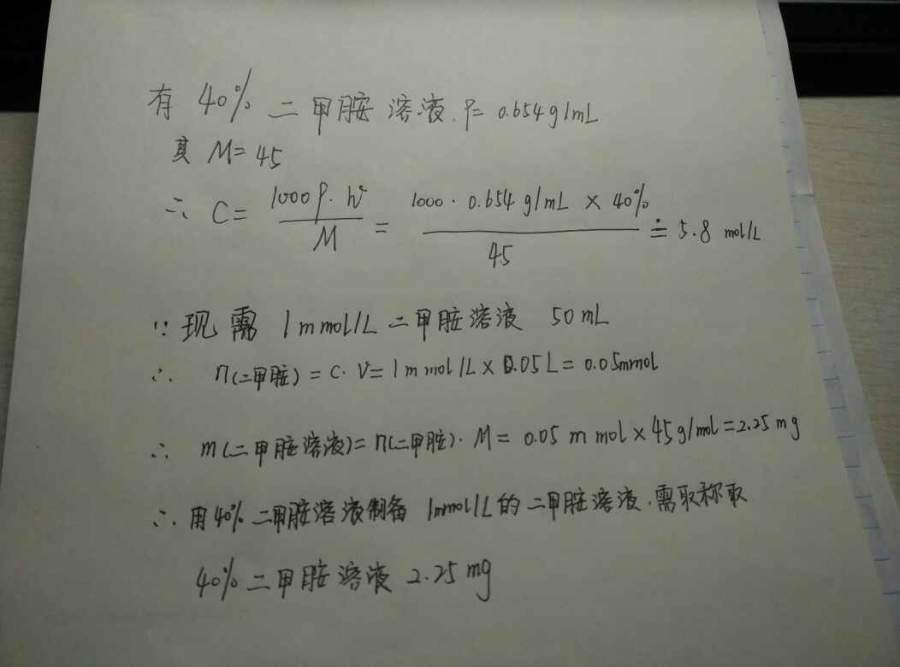 有 40% 二甲胺溶液. ρ= 0.654g/mL
其 M=45
∴ C= 1000ρ·W / M = 1000·0.654 g/mL × 40% / 45 ≐ 5.8 mol/L
∵ 现需 1mmol/L 二甲胺溶液 50mL
∴ n(二甲胺) = C·V = 1mmol/L×0.05L = 0.05mmol
∴ m(二甲胺溶液)=n(二甲胺)·M= 0.05 mmol×45g/mol=2.25mg
∴ 用40%二甲胺溶液制备 1mmol/L的二甲胺溶液.需取称取
40%二甲胺溶液 2.25mg